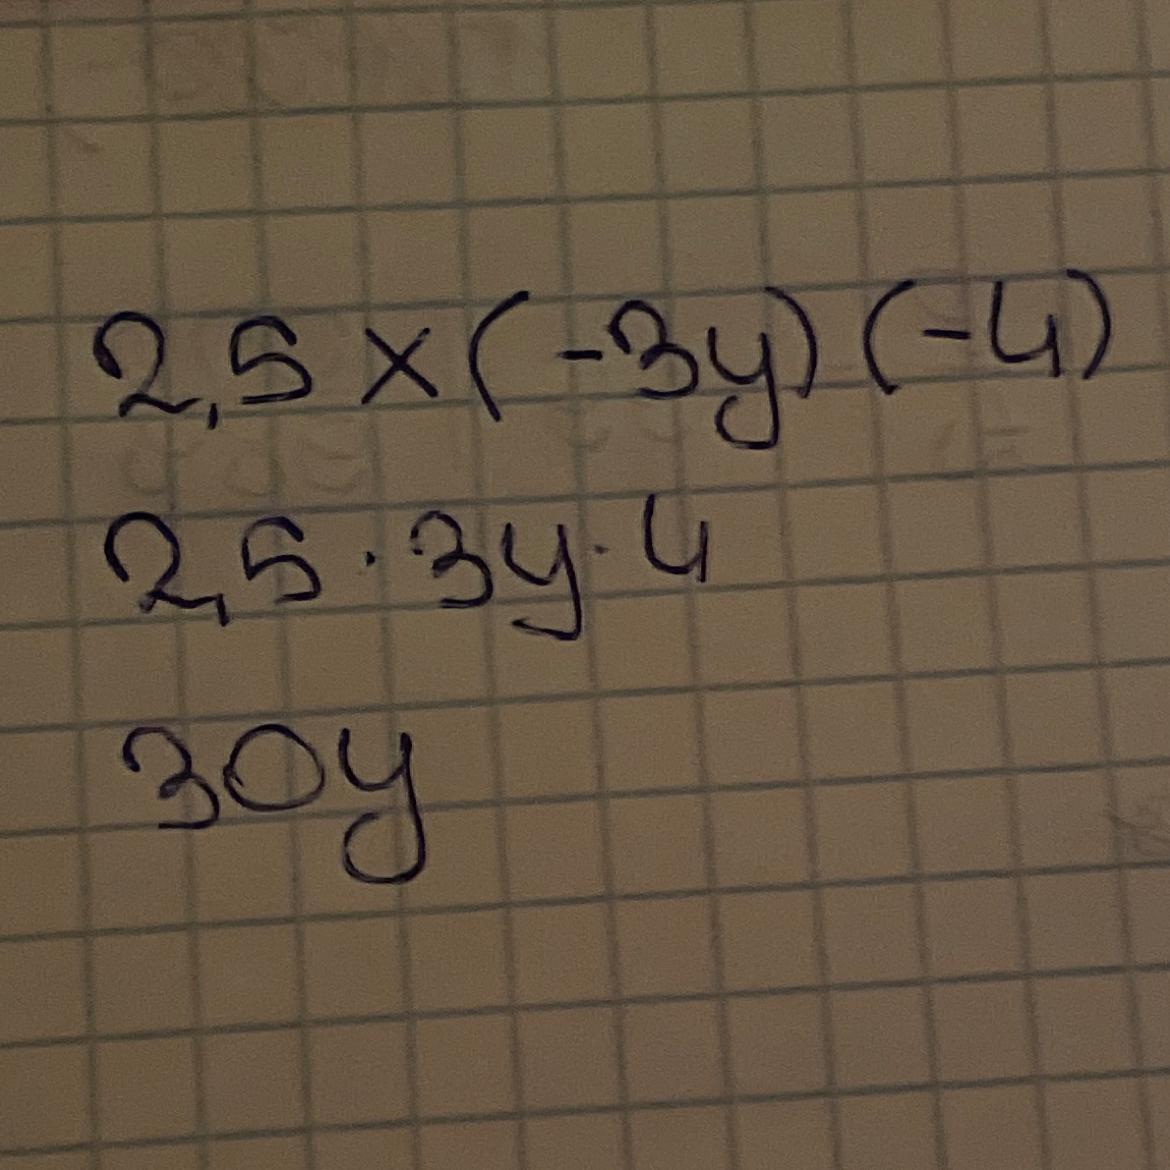 2,5 x (-3y) (-4)
2,5 · 3y · 4
30y